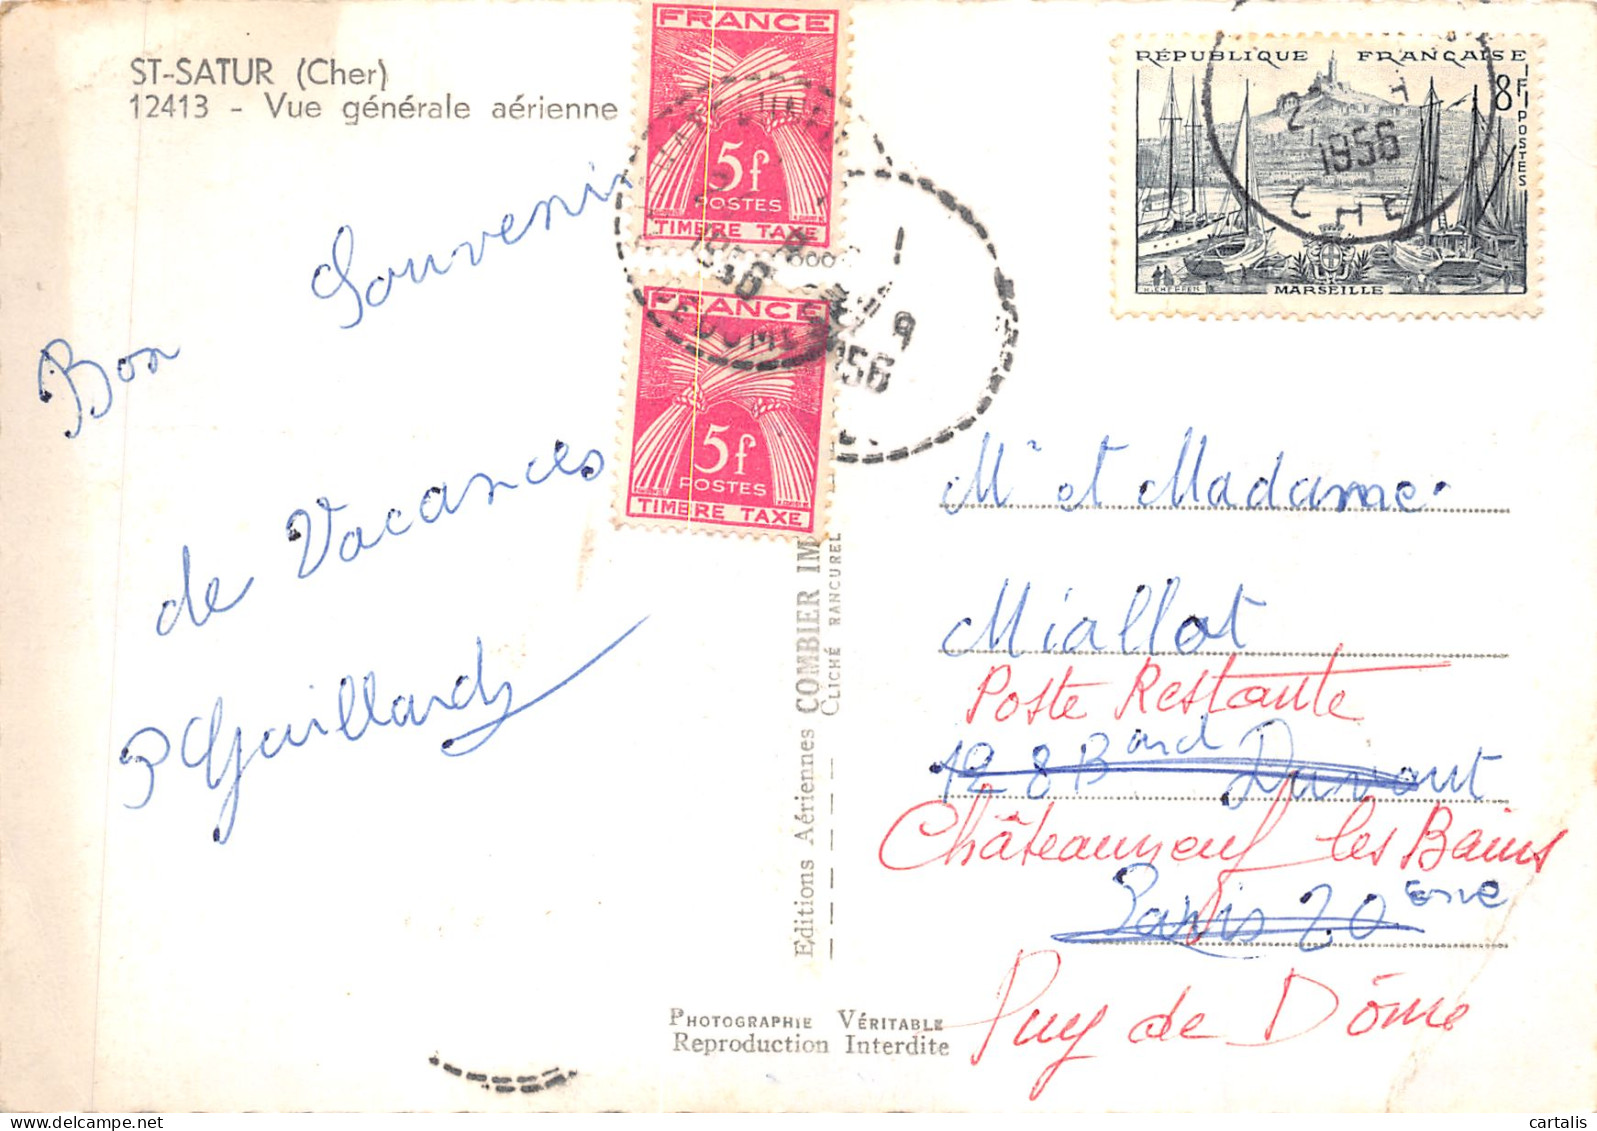 ST-SATUR (Cher)
12413 - Vue générale aérienne
Bon Souvenir
de Vacances
P Gaillard
FRANCE
5f
POSTES
TIMBRE TAXE
1956
FRANCE
5f
POSTES
TIMBRE TAXE
1956
RÉPUBLIQUE FRANÇAISE
8F
POSTES
1956
CHE
MARSEILLE
Editions Aériennes COMBIER IM
CLICHÉ RANCUREL
Mr et Madame
Miallot
Poste Restante
128 Bard Davout
Châteauneuf les Bains
Paris 20 eme
Puy de Dôme
PHOTOGRAPHIE VÉRITABLE
Reproduction Interdite
cartalis